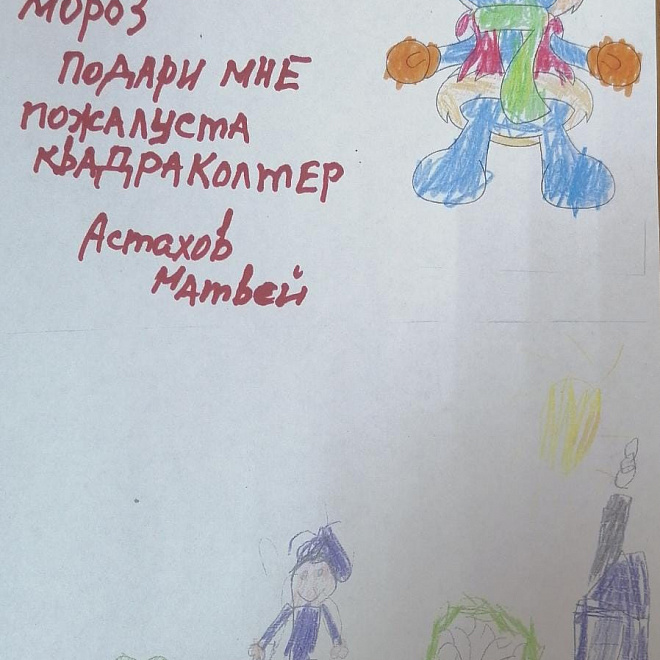 МОРОЗ
ПОДАРИ МНЕ
ПОЖАЛУСТА
КВАДРАКОЛТЕР
Астахов
Матвей